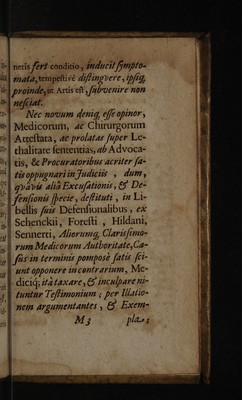 neris fert conditio, inducit sympto-
mata, tempestivè distingvere, ipsiq;
proinde, ut Artis est, subvenire non
nesciat.
Nec novum deniq; esse opinor,
Medicorum, ac Chirurgorum
Attestata, ac prolatas super Le-
thalitate sententias, ab Advoca-
tis, & Procuratoribus acriter sa-
tis oppugnari in Judiciis, dum,
qvâvis aliâ Excusationis, & De-
fensionis specie, destituti, in Li-
bellis suis Defensionalibus, ex
Schenckii, Foresti, Hildani,
Sennerti, Aliorumq; Clarissimo-
rum Medicorum Authoritate, Ca-
sus in terminis pomposè satis sci-
unt opponere in contrarium, Me-
diciq; ità taxare, & inculpare ni-
tuntur Testimonium; per Illatio-
nem argumentantes, & Exem-
M 3 pla;